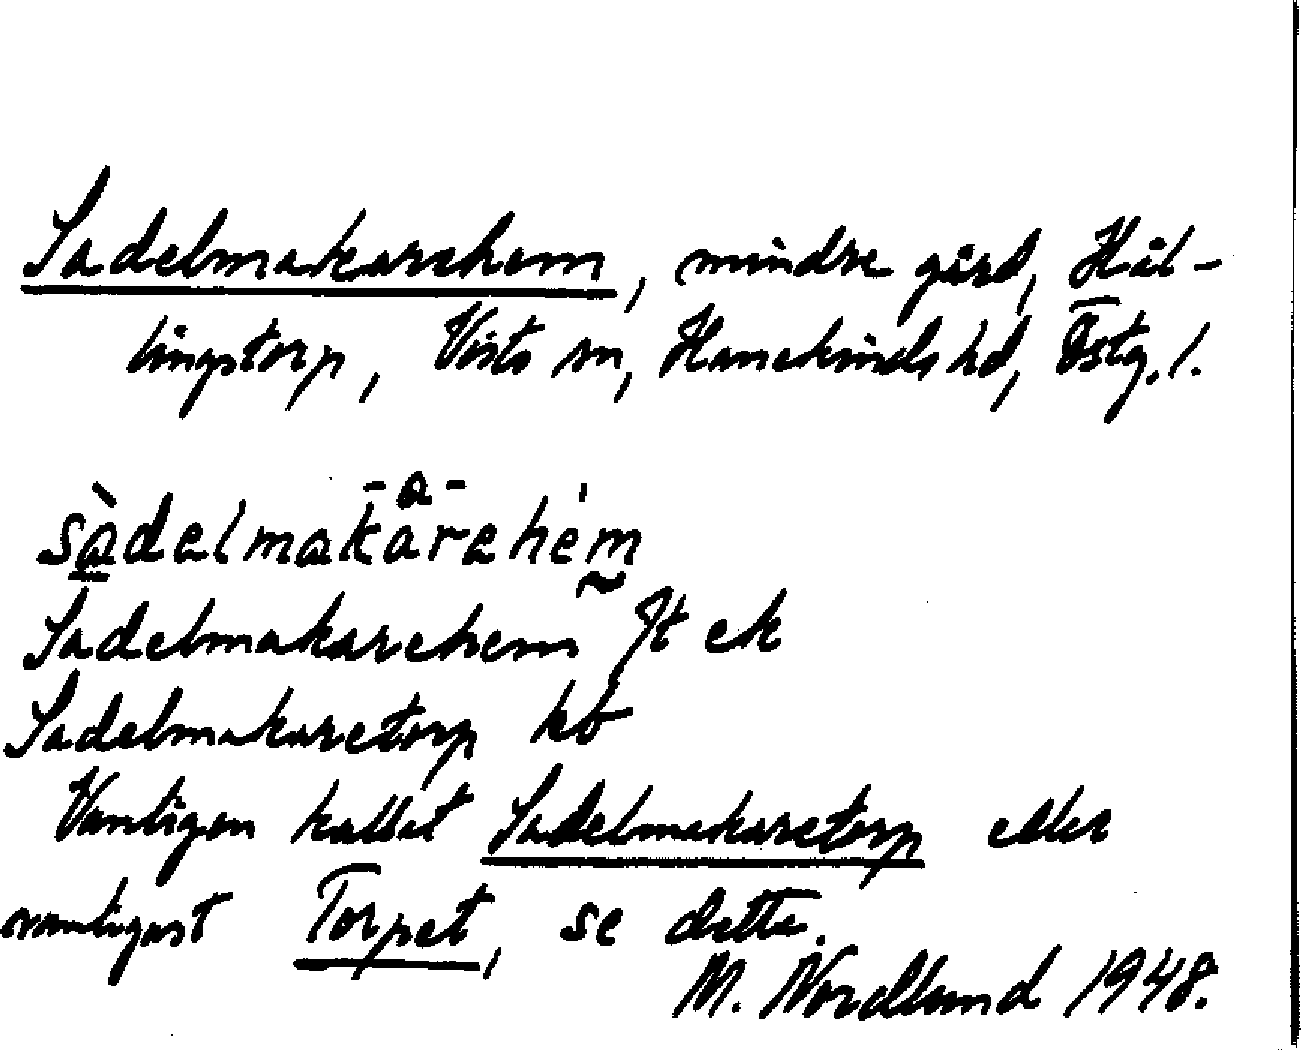 Sadelmakarehem, mindre gård, Häl-
lingstorp, Vists sn, Hanekinds hd, Östg. l.
sàdelmakårehem
Sadelmakarehem Jt ek
Sadelmakaretorp hb
Vanligen kallat Sadelmakaretorp eller
vanligast Torpet, se detta.
M. Nordlund 1948.